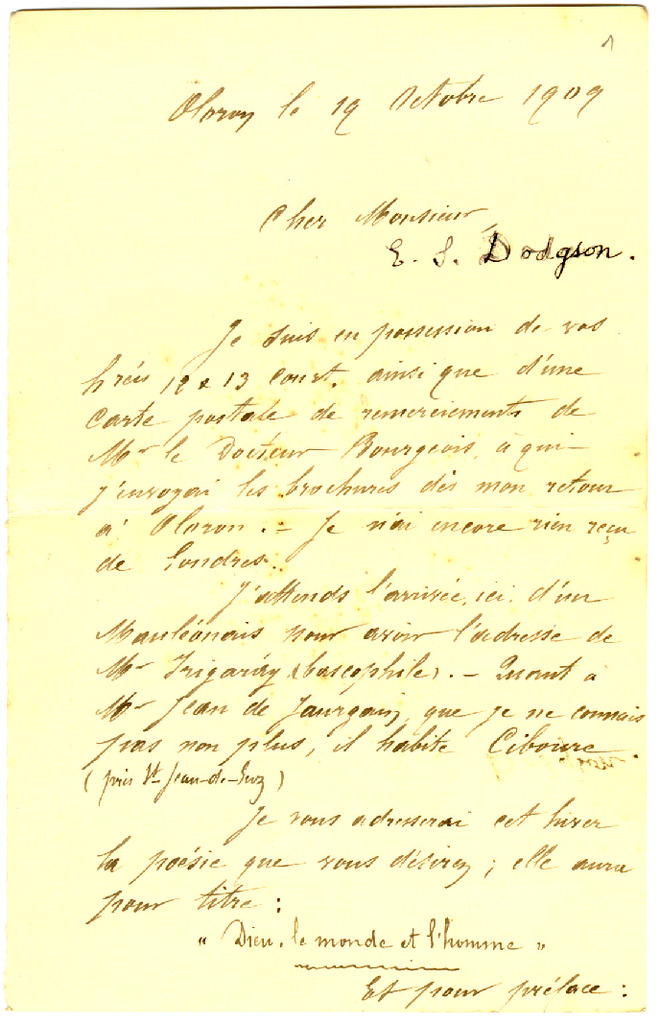 1
Oloron le 19 Octobre 1909
Cher Monsieur,
E. S. Dodgson.
Je suis en possession de vos
12 & 13 court. ainsi que d'une
Carte postale de remerciements de
Mr le Docteur Bourgeois, à qui
j'envoyai les brochures dès mon retour
à Oloron. – Je n'ai encore rien reçu
de Londres.
J'attends l'arrivée, ici, d'un
Mauléonais pour avoir l'adresse de
Mr (bascophile). – Quant à
Mr Jean de Jaurgain, que je ne connais
pas non plus, il habite Ciboure
(près St Jean-de-Luz)
Je vous adresserai cet hiver
la poésie que vous désirez ; elle aura
pour titre :
" Dieu, le monde et l'homme "
Et pour préface :